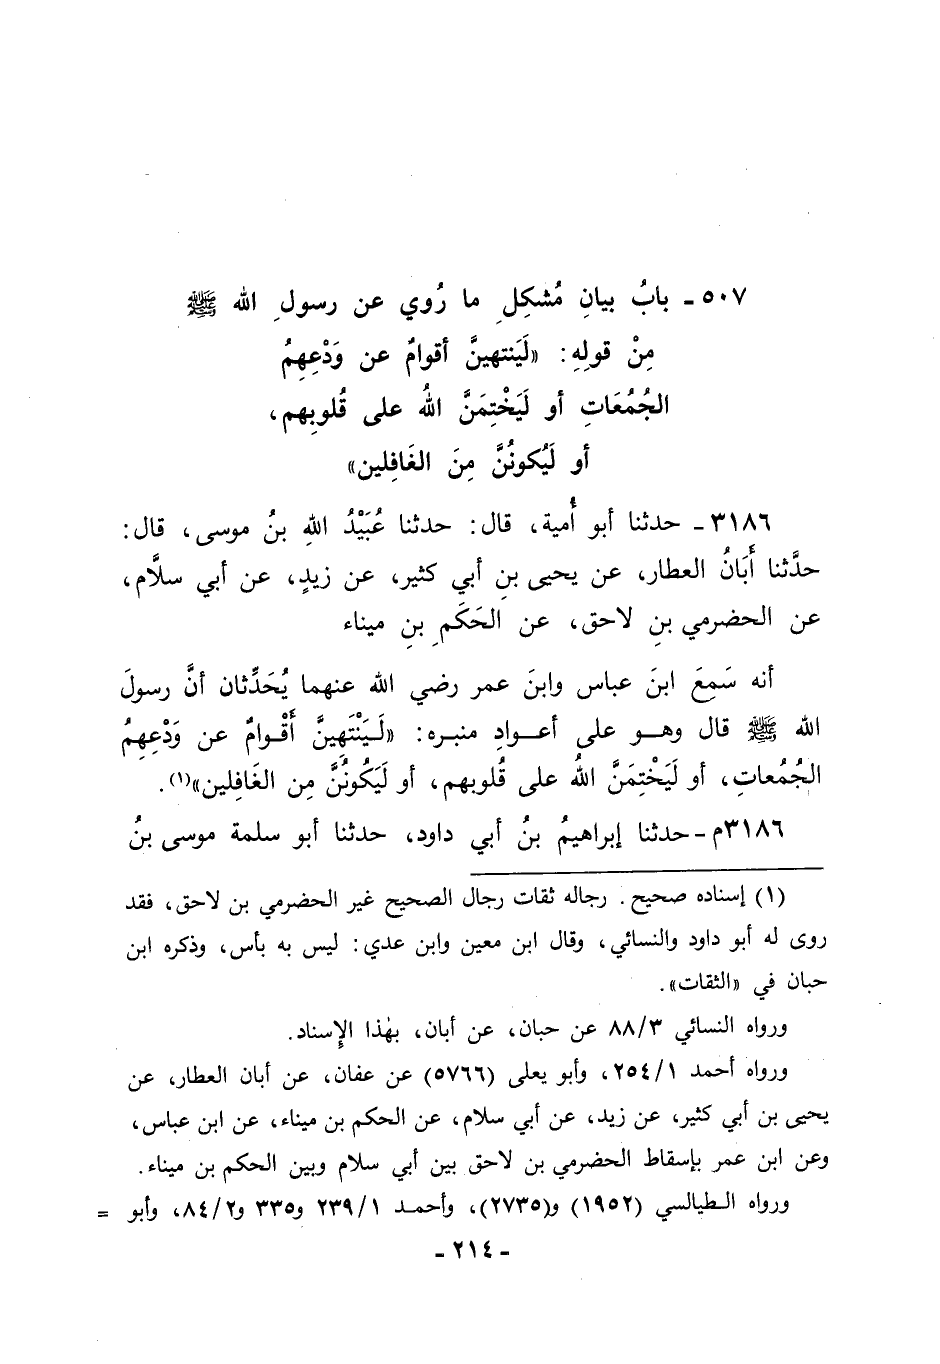 ٥٠٧ ـ بابُ بيانِ مُشكِلِ ما رُوي عن رسولِ الله ﷺ
مِنْ قولِهِ: «لَيَنتهينَّ أقوامٌ عن وَدْعِهِمُ
الجُمُعَاتِ أو لَيَخْتِمَنَّ اللهُ على قُلوبِهم،
أو لَيُكونُنَّ مِنَ الغَافِلين»
٣١٨٦ـ حدثنا أبو أُمية، قال: حدثنا عُبَيْدُ اللهِ بنُ موسى، قال:
حدَّثنا أَبَانُ العطار، عن يحيى بنِ أبي كثير، عن زيدٍ، عن أبي سلَّام،
عن الحضرمي بنِ لاحق، عن الحَكَمِ بنِ ميناء
أنه سَمِعَ ابنَ عباس وابنَ عمر رضي الله عنهما يُحَدِّثان أنَّ رسولَ
الله ﷺ قال وهو على أعوادِ منبره: «لَيَنْتَهِينَّ أَقْوامٌ عن وَدْعِهِمُ
الجُمُعاتِ، أو لَيَخْتِمَنَّ اللهُ على قُلوبِهم، أو لَيَكُونُنَّ مِن الغَافلين»(١).
٣١٨٦م - حدثنا إبراهيمُ بنُ أبي داود، حدثنا أبو سلمة موسى بنُ
(١) إسناده صحيح. رجاله ثقات رجال الصحيح غير الحضرمي بن لاحق، فقد
روى له أبو داود والنسائي، وقال ابن معين وابن عدي: ليس به بأس، وذكره ابن
حبان في «الثقات».
ورواه النسائي ٨٨/٣ عن حبان، عن أبان، بهٰذا الإِسناد.
ورواه أحمد ٢٥٤/١، وأبو يعلى (٥٧٦٦) عن عفان، عن أبان العطار، عن
يحيى بن أبي كثير، عن زيد، عن أبي سلام، عن الحكم بن ميناء، عن ابن عباس،
وعن ابن عمر بإسقاط الحضرمي بن لاحق بين أبي سلام وبين الحكم بن ميناء.
ورواه الطيالسي (١٩٥٢) و(٢٧٣٥)، وأحمد ٢٣٩/١ و٣٣٥ و٨٤/٢، وأبو =
- ٢١٤ -